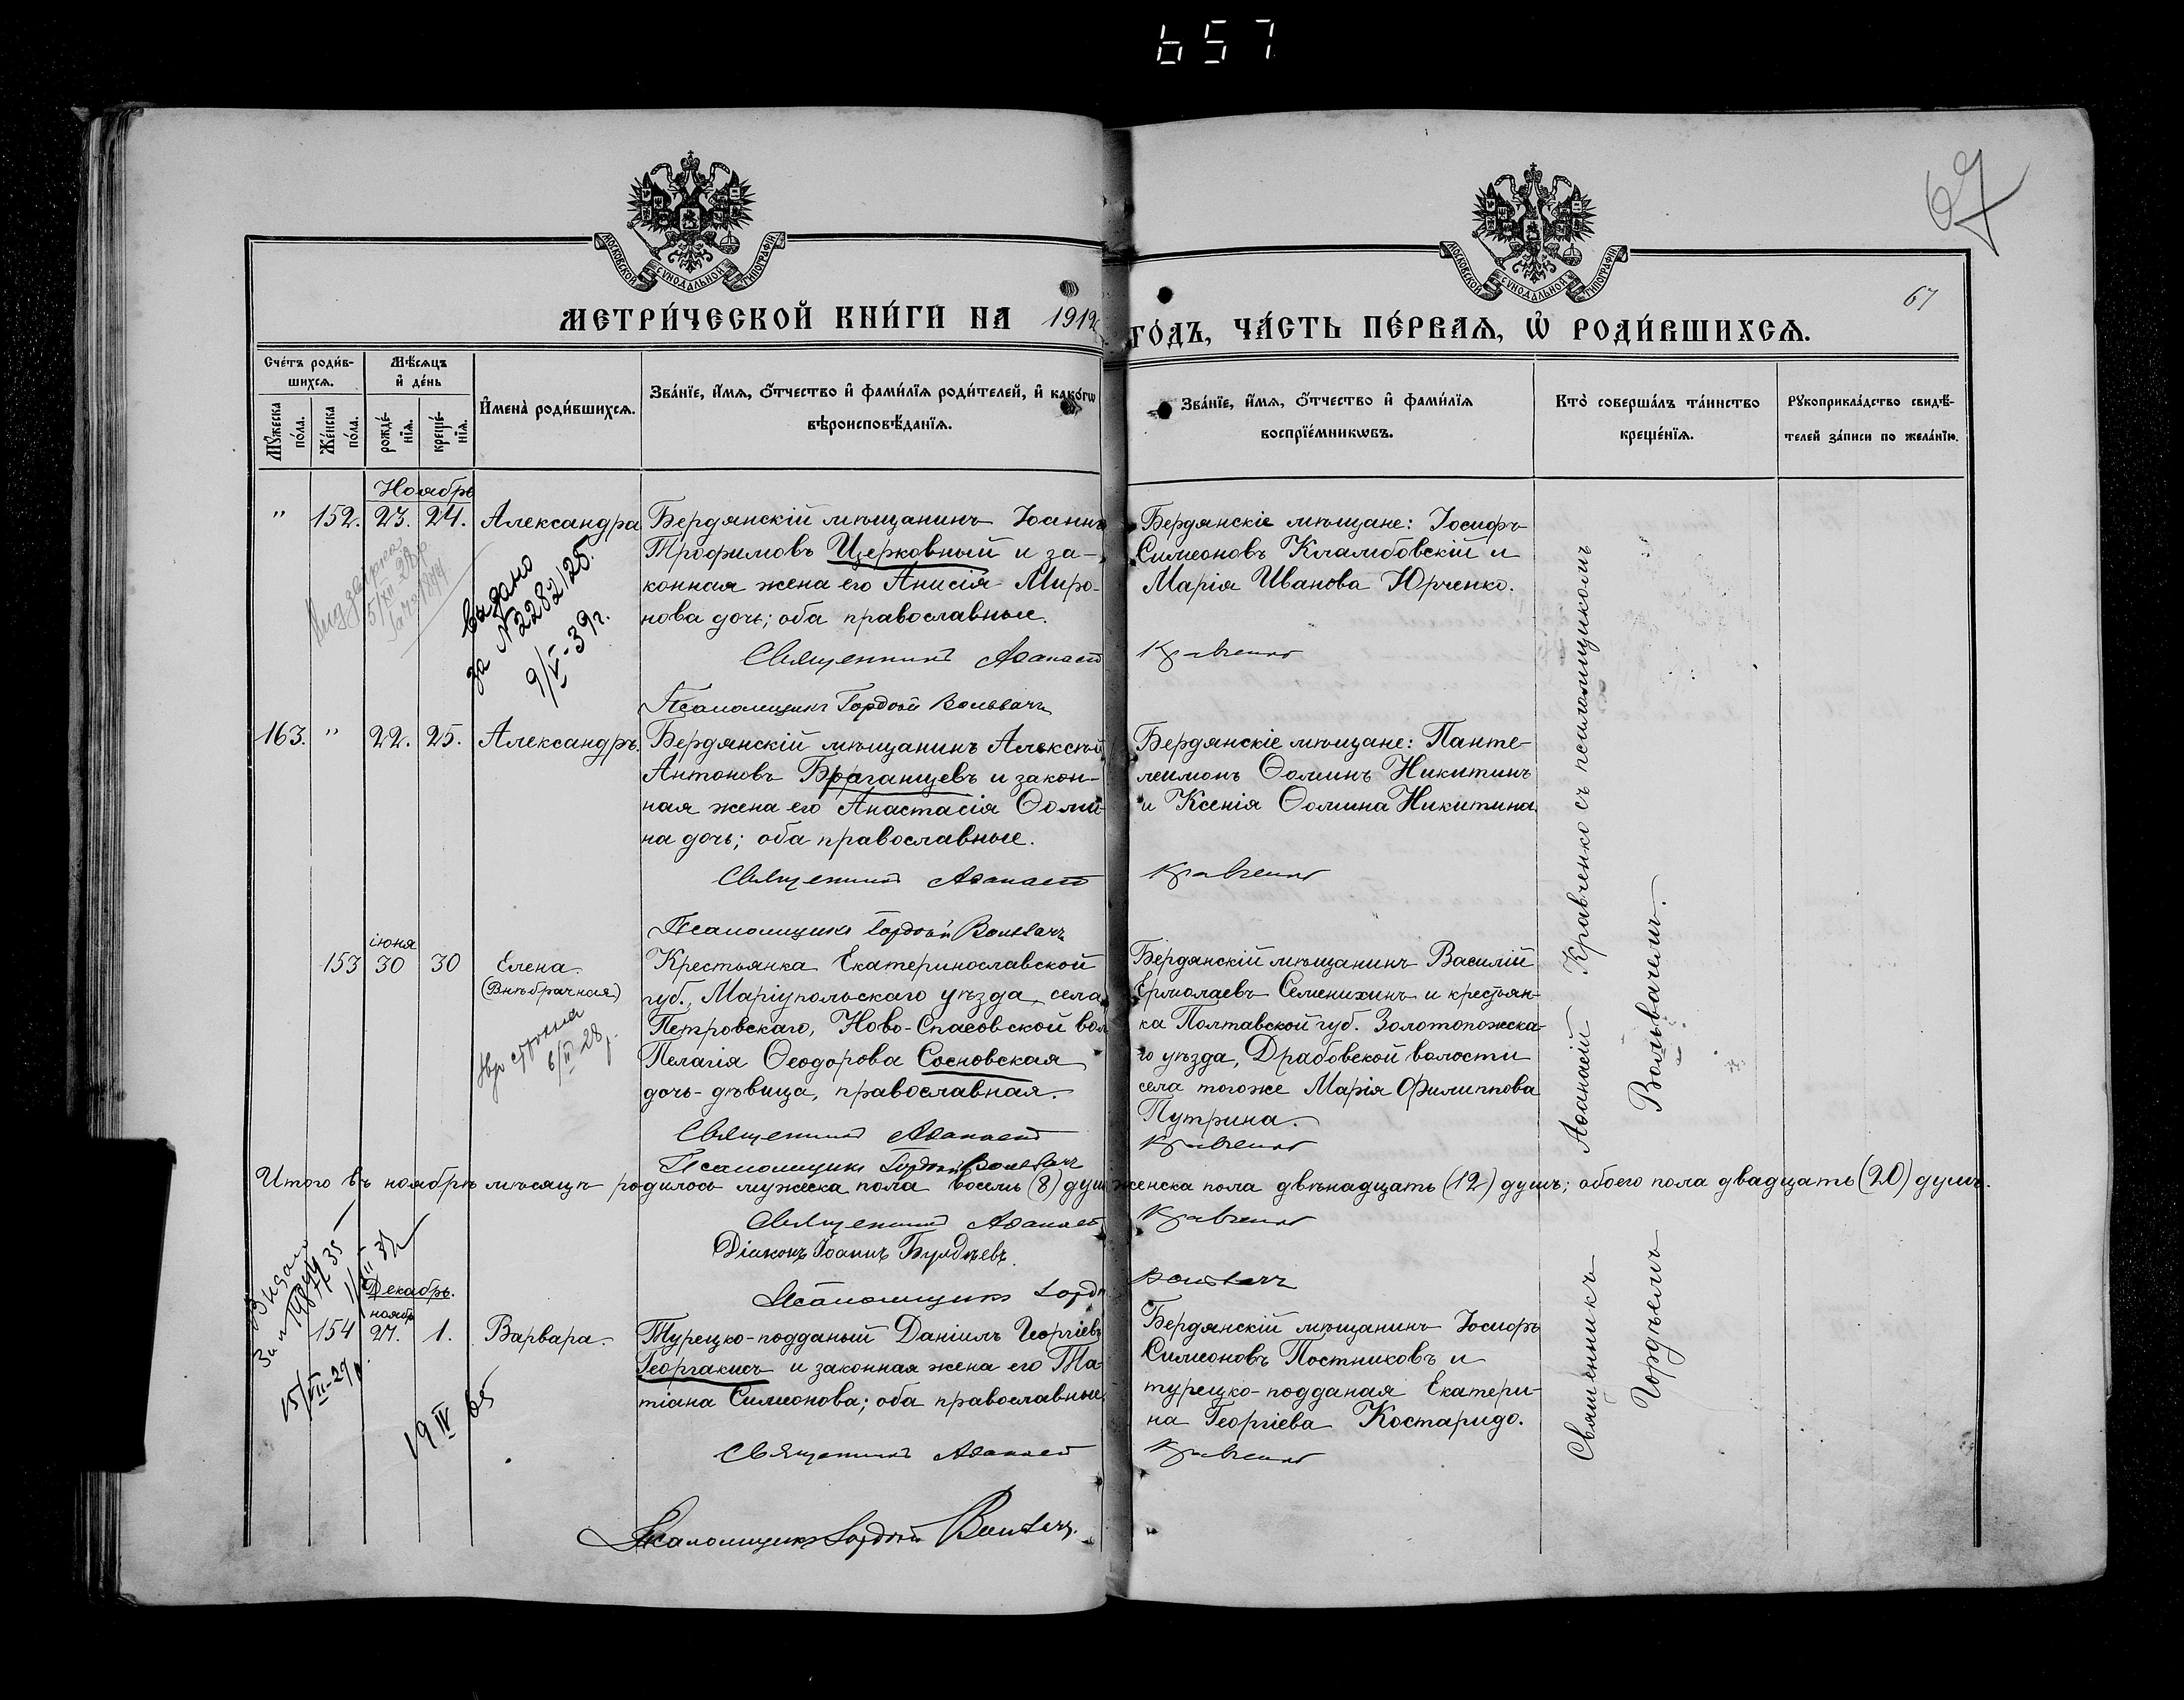 657
67
МОСКОВСКОЙ СѴНОДАЛЬНОЙ ТИПОГРАФІИ
МОСКОВСКОЙ СѴНОДАЛЬНОЙ ТИПОГРАФІИ
67
МЕТРИ́ЧЕСКОЙ КНИ́ГИ НА 1912
ГО́ДЪ, ЧА́СТЬ ПЕ́РВАЯ, Ѡ҆ РОДИ́ВШИХСЯ.
Сче́тъ роди́в-
шихся.
Мꙋ́жеска по́ла.
Же́нска по́ла.
Мѣ́сяцъ
и҆ де́нь
рожде́-
нїя.
креще́-
нїя.
И҆мена̀ роди́вшихся.
Зва́нїе, и҆́мя, ѻ҆́тчество и҆ фами́лїя роди́телей, и҆ како́гѡ
вѣроисповѣ́данїя.
Зва́нїе, и҆́мя, ѻ҆́тчество и҆ фами́лїя
воспрїе́мникѡвъ.
Кто̀ соверша́лъ та́инство
креще́нїя.
Рꙋкоприкла́дство свидѣ́-
телей за́писи по жела́нїю.
Ноябрь
" 152. 23. 24. Александра
Бердянскій мѣщанинъ Іоаннъ
Трофимовъ Церковный и за-
конная жена его Анисія Миро-
нова дочь; оба православные.
Священникъ Аѳанасій
Псаломщикъ Гордѣй Вольвачъ
Бердянскіе мѣщане: Іосифъ
Симеоновъ Кламбовскій и
Марія Иванова Юрченко.
Кравченко
Выдано
за № 2282/25.
9/V-39г.
163. " 22. 25. Александръ.
Бердянскій мѣщанинъ Алексѣй
Антоновъ Браганцевъ и закон-
ная жена его Анастасія Ѳоми-
на дочь; оба православные.
Священникъ Аѳанасій
Псаломщикъ Гордѣй Вольвачъ
Бердянскіе мѣщане: Панте-
леимонъ Ѳоминъ Никитинъ
и Ксенія Ѳомина Никитина
Кравченко
іюня
153 30 30 Елена.
(Внѣбрачная)
6/VI-28г.
Крестьянка Екатеринославской
губ., Маріупольскаго уѣзда, села
Петровскаго, Ново-Спасовской вол
Пелагія Ѳеодорова Сосновская
дочь-дѣвица, православная.
Священникъ Аѳанасій
Псаломщикъ Гордѣй Вольвачъ
Бердянскій мѣщанинъ Василій
Ермолаевъ Семенихинъ и крестьян-
ка Полтавской губ. Золотоножска-
го уѣзда, Драбовской волости
села тогоже Марія Филиппова
Путрина.
Кравченко
Итого въ ноябрѣ мѣсяцѣ родилось мужеска пола восемь (8) душ женска пола двѣнадцать (12) душъ; обоего пола двадцать (20) душъ.
Священникъ Аѳанасій Кравченко
Діаконъ Іоаннъ
Псаломщикъ Гордѣй Вольвачъ
Декабрь.
ноябр
154 27. 1. Варвара.
Турецко-подданый Даніилъ Георгіевъ
Георгакисъ и законная жена его Та-
тіана Симеонова; оба православные
Священникъ Аѳанасій
Псаломщикъ Гордѣй Вольвачъ.
Бердянскій мѣщанинъ Іосифъ
Симеоновъ Постниковъ и
турецко-подданая Екатери-
на Георгіева Костаридо.
Кравченко
15/VII-29г.
19 IV 65
Священникъ Аѳанасій Кравченко съ псаломщикомъ
Гордѣемъ Вольвачемъ.